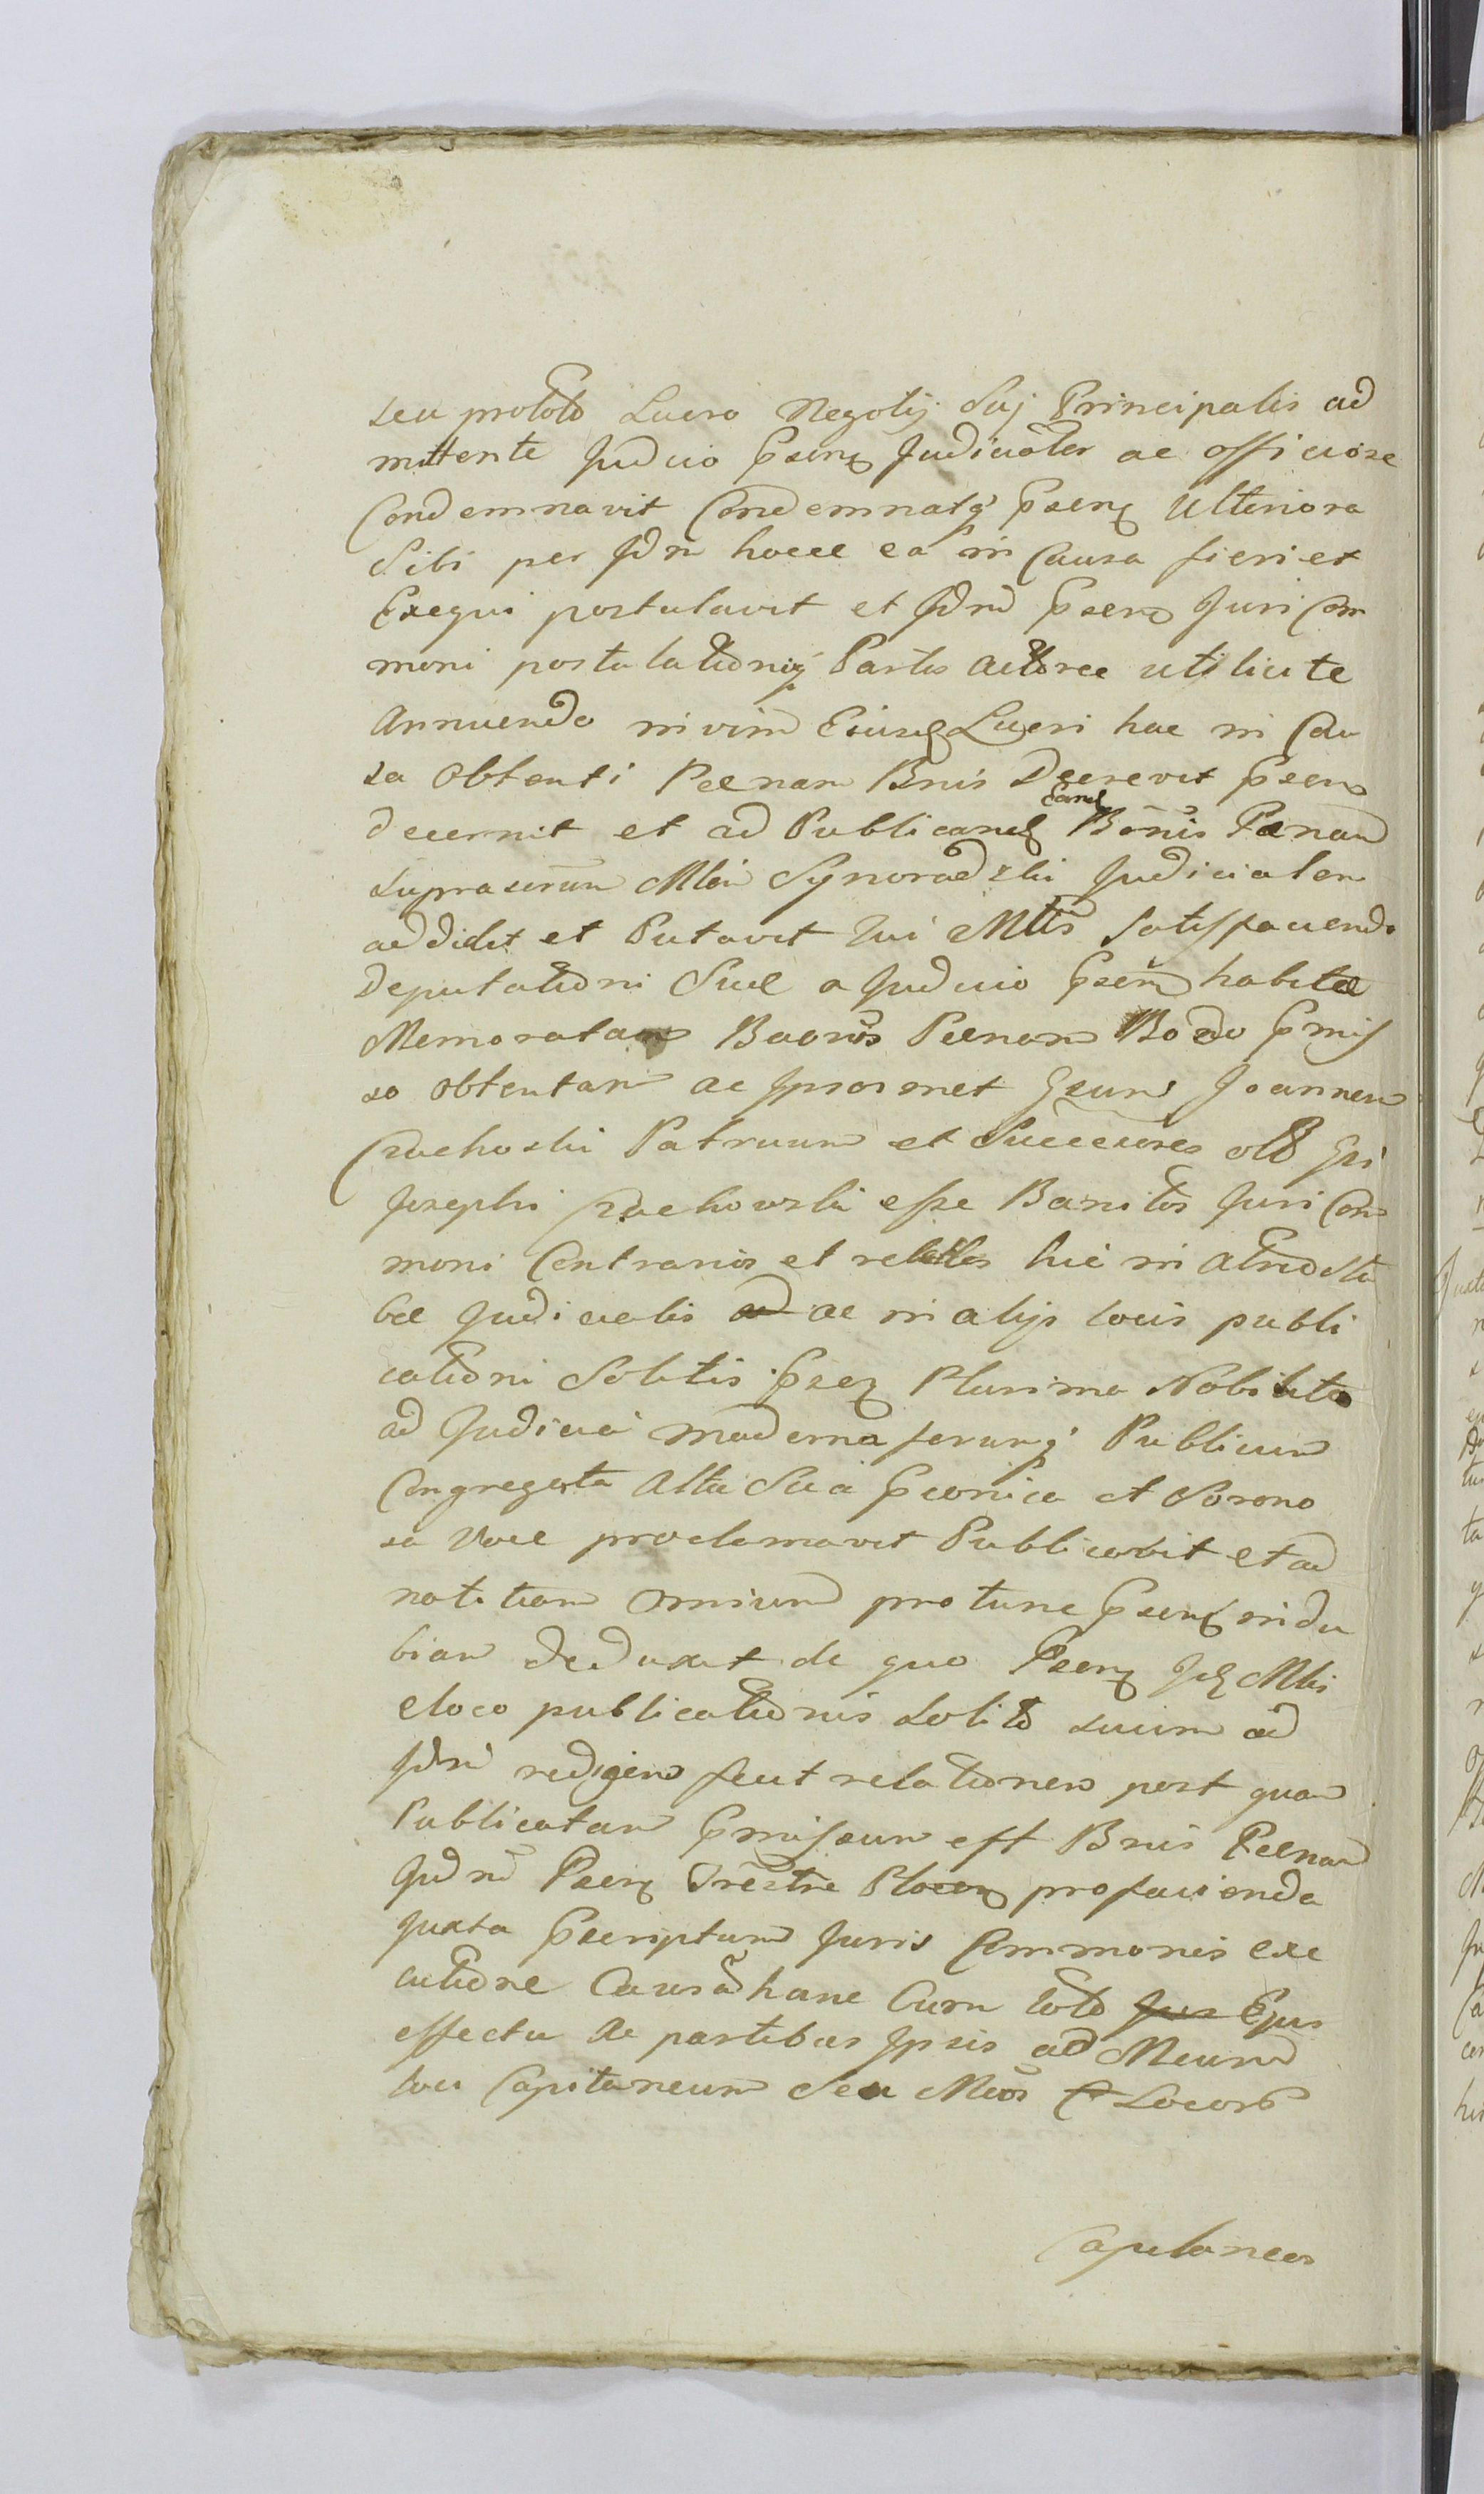 seu prototo Lucro Negotij Suj Principalis ad
mittente Judicio Psenq Judicialer ac officiose
Condemnavit Condemnatq Psenq Ulteriora
Sibi per Jdm hocce ea in Causa fieri et
Exequi postulavit et Jdm Psens Juri Com
muni postulationiq Partis Actoreae utilicite
Annuendo in vim Eiusd Lucri hac in Cau
sa Obtenti Peenam Bnis Decrevit Psens
decernit et ad Publicand Eand Bonis Paenam
suprascrum Mlem Synoradzki Judicialem
addidit et Putavit Qui Mlis Satisfaciendo
Deputationi Suae a Judicio Psenti habitae
Memoratam Baoris Peenam Modo Pmis
so Obtentam ac Ipsosmet Gsum Joannem
Czachoski Patruum et Succeores olb Gsi
Josephi Czachowski esse Banitos Juri Com
muni Contrarios et rebelles hic in Atrio Stu
bae Judicialis ac in alijs locis publi
cationi Solitis Psenq Plurima Nobilitate
ad Judicia moderna ferunq Publicum
Congregata Alta Sua Pconica et Sorono
sa Voce proclamavit Publicavit et ad
notitiam Omnium pro tunc Psenq indu
biam deduxit de quo Psenq Jd Mlis
e loco publicationis Solito suum ad
Jdm rediens fecit relationem post quam
Publicatam Pmissum est Bnis Peenam
Jdm Psenq Trestre Plocen pro facienda
Juxta Pscriptum Juris Communis exe
cutione Causam hanc Cum toto Jus Ejus
effectu Ac partibus Ipsis ad Meum
loci Capitaneum Seu Meos Locorb

Capitaneos